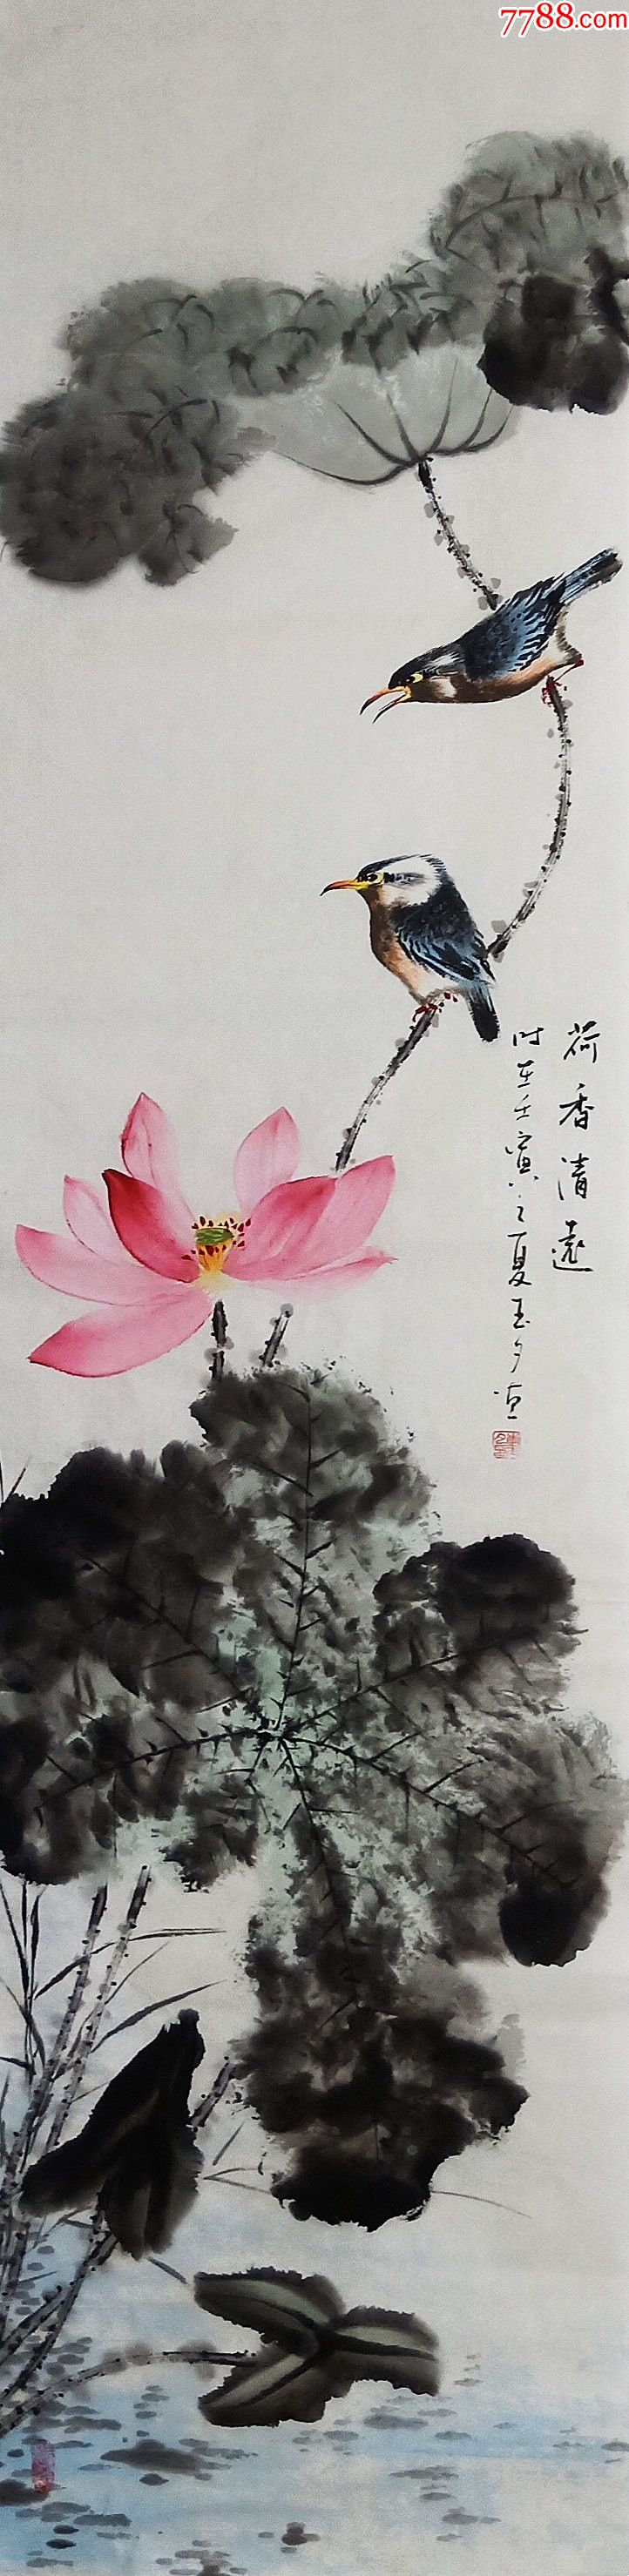 7788.com
荷香清遠
时在壬寅之夏玉夕画